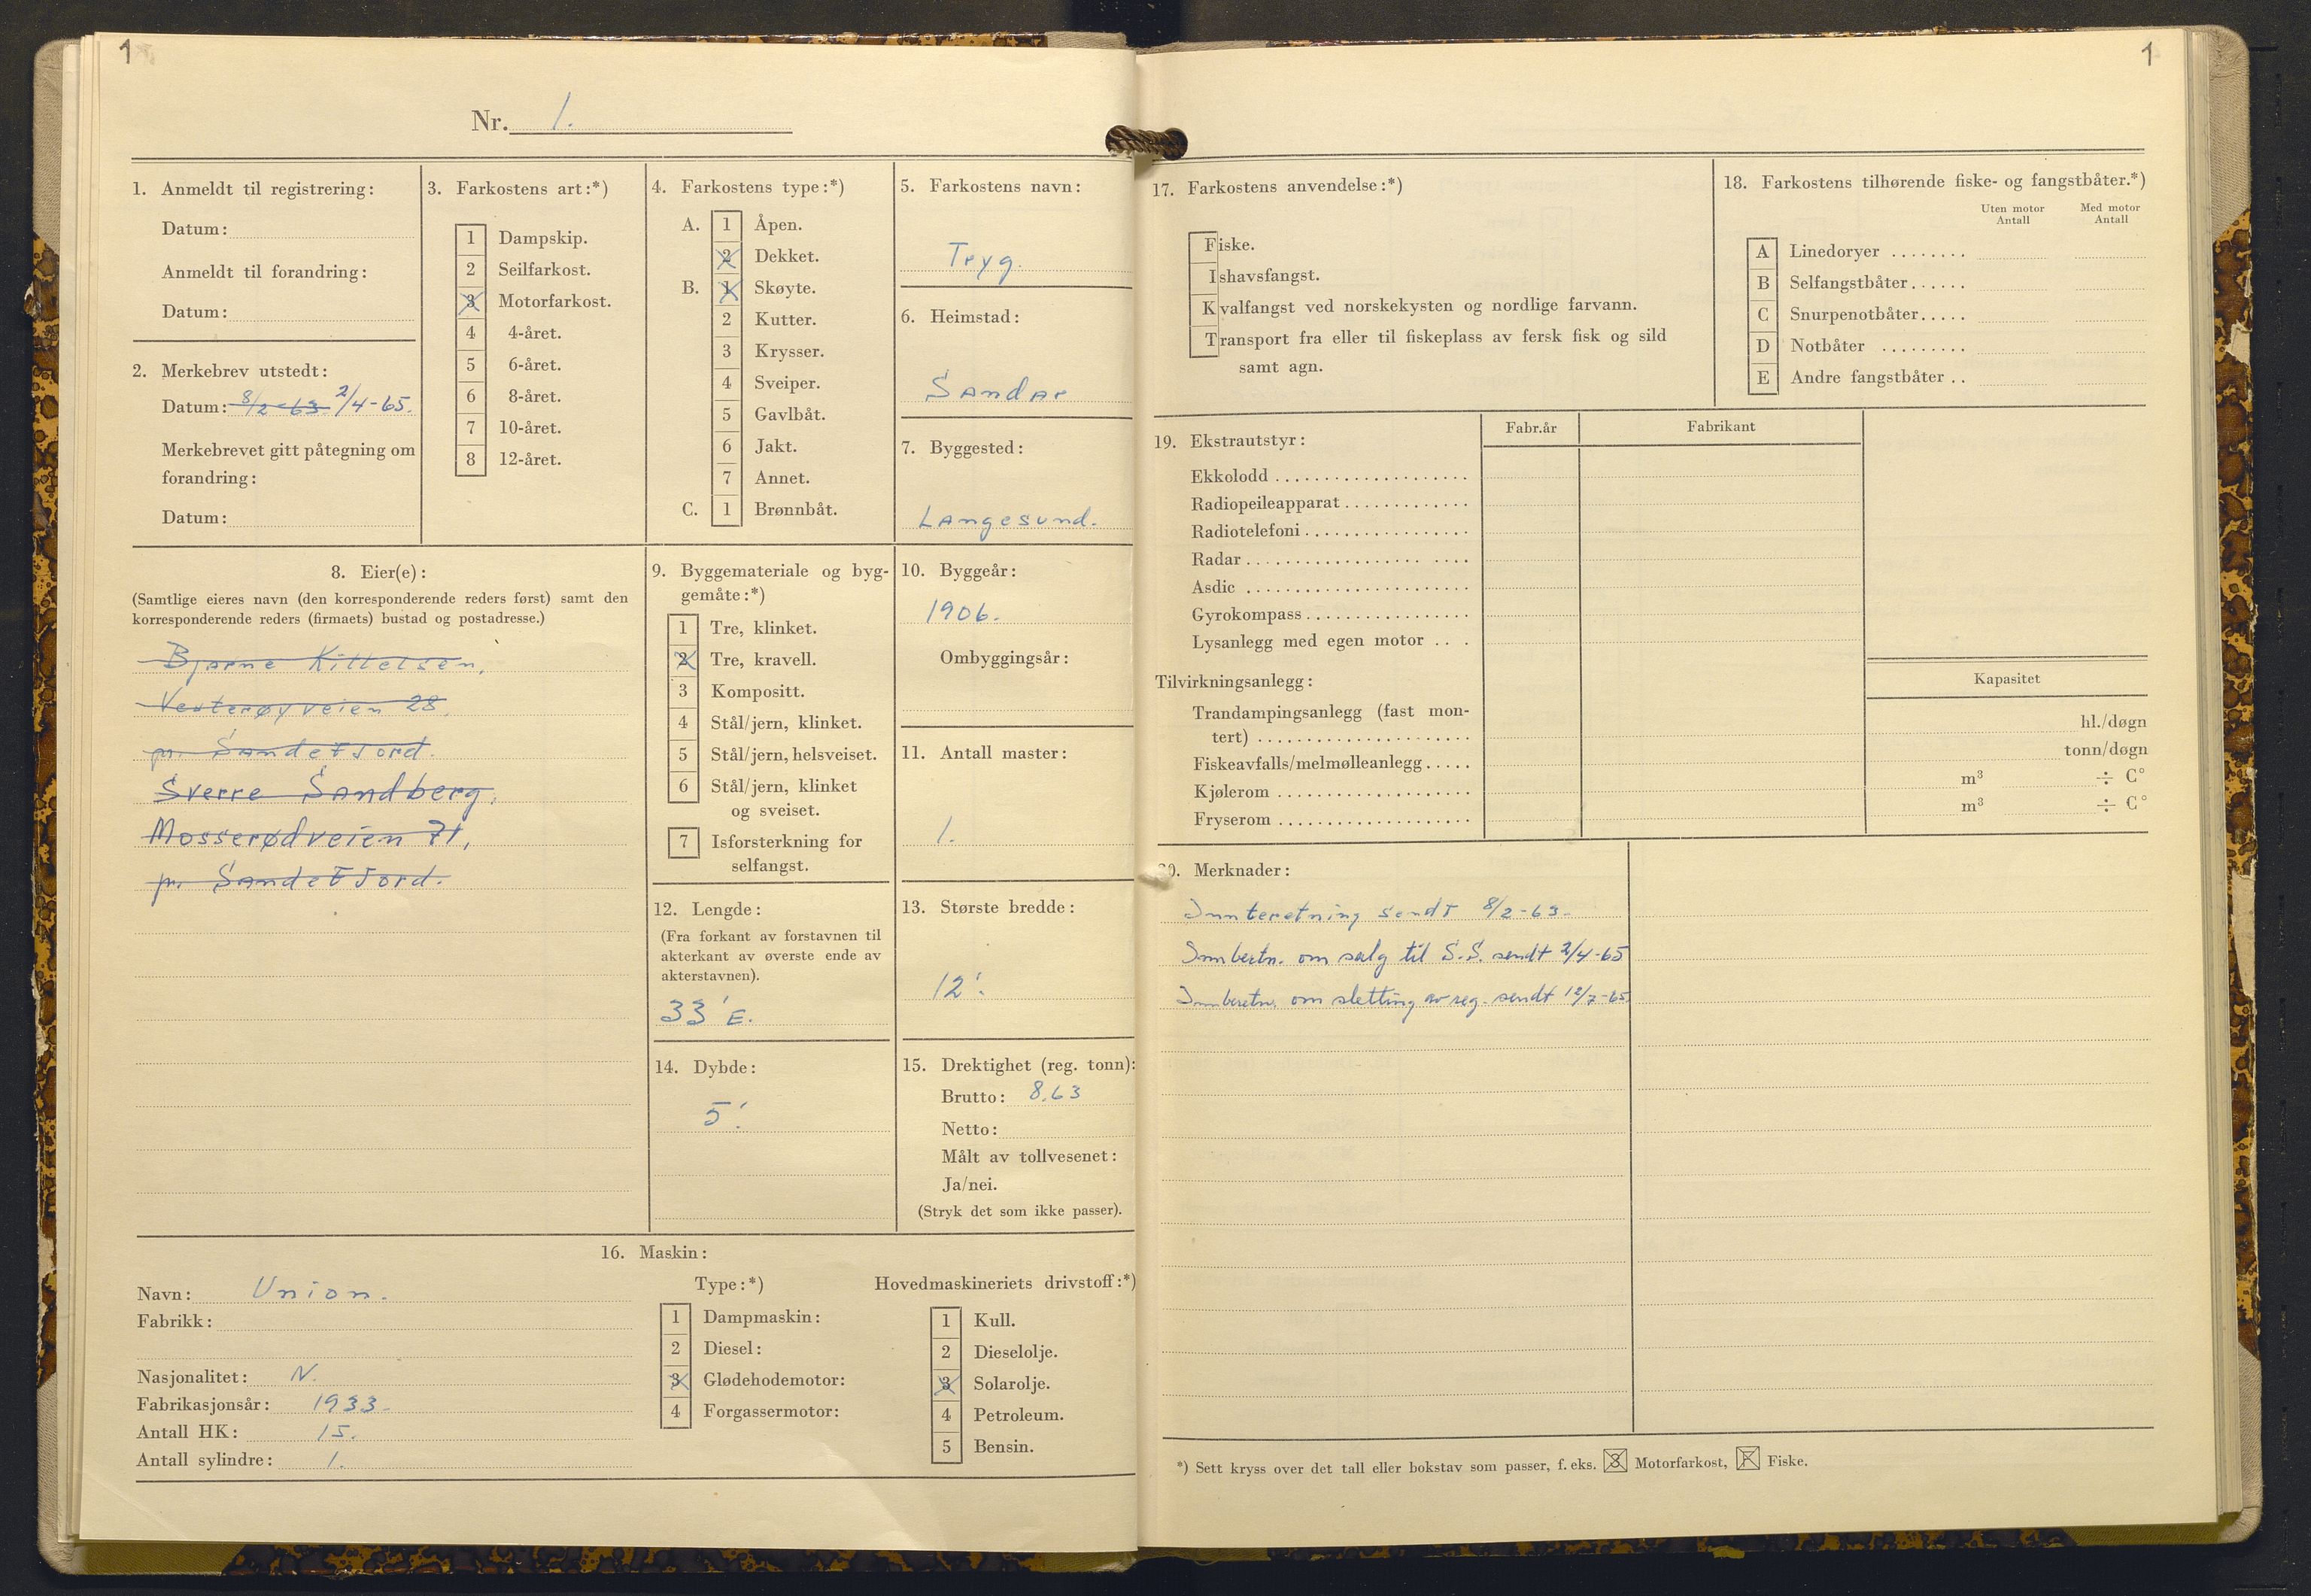 1
Nr. 1.
1. Anmeldt til registrering:
Datum:
Anmeldt til forandring:
Datum:
2. Merkebrev utstedt:
Datum: 8/2-63 2/4-65.
Merkebrevet gitt påtegning om
forandring:
Datum:
3. Farkostens art:*)
1 Dampskip.
2 Seilfarkost.
3 Motorfarkost.
4 4-året.
5 6-året.
6 8-året.
7 10-året.
8 12-året.
4. Farkostens type:*)
A. 1 Åpen.
2 Dekket.
B. 1 Skøyte.
2 Kutter.
3 Krysser.
4 Sveiper.
5 Gavlbåt.
6 Jakt.
7 Annet.
C. 1 Brønnbåt.
5. Farkostens navn:
Tryg.
6. Heimstad:
Sandar
7. Byggested:
Langesund.
8. Eier(e):
(Samtlige eieres navn (den korresponderende reders først) samt den
korresponderende reders (firmaets) bustad og postadresse.)
Bjarne Kittelsen,
Vesterøyveien 28,
pr. Sandefjord.
Sverre Sandberg,
Mosserødveien 71,
pr. Sandefjord.
9. Byggemateriale og byg-
gemåte:*)
1 Tre, klinket.
2 Tre, kravell.
3 Kompositt.
4 Stål/jern, klinket.
5 Stål/jern, helsveiset.
6 Stål/jern, klinket
og sveiset.
7 Isforsterkning for
selfangst.
10. Byggeår:
1906.
Ombyggingsår:
11. Antall master:
1.
12. Lengde:
(Fra forkant av forstavnen til
akterkant av øverste ende av
akterstavnen).
33' E.
13. Største bredde:
12'.
14. Dybde:
5'.
15. Drektighet (reg. tonn):
Brutto: 8,63
Netto:
Målt av tollvesenet:
Ja/nei.
(Stryk det som ikke passer).
16. Maskin:
Navn: Union.
Fabrikk:
Nasjonalitet: N.
Fabrikasjonsår: 1933.
Antall HK: 15.
Antall sylindre: 1.
Type:*)
1 Dampmaskin:
2 Diesel:
3 Glødehodemotor:
4 Forgassermotor:
Hovedmaskineriets drivstoff:*)
1 Kull.
2 Dieselolje.
3 Solarolje.
4 Petroleum.
5 Bensin.
1
17. Farkostens anvendelse:*)
Fiske.
Ishavsfangst.
Kvalfangst ved norskekysten og nordlige farvann.
Transport fra eller til fiskeplass av fersk fisk og sild
samt agn.
18. Farkostens tilhørende fiske- og fangstbåter.*)
Uten motor Antall
Med motor Antall
A Linedoryer
B Selfangstbåter
C Snurpenotbåter
D Notbåter
E Andre fangstbåter
19. Ekstrautstyr:
Fabr.år
Fabrikant
Ekkolodd
Radiopeileapparat
Radiotelefoni
Radar
Asdic
Gyrokompass
Lysanlegg med egen motor
Tilvirkningsanlegg:
Kapasitet
Trandampingsanlegg (fast mon-
tert) hl./døgn
Fiskeavfalls/melmølleanlegg tonn/døgn
Kjølerom m³ ÷ C°
Fryserom m³ ÷ C°
20. Merknader:
sendt 8/2-63.
om salg til S.S. sendt 2/4-65
Innberetn. om sletting av reg. sendt 12/7-65.
*) Sett kryss over det tall eller bokstav som passer, f. eks. 3 Motorfarkost, F Fiske.